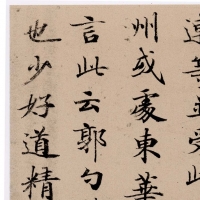 連等並受此
州或處東華
言此云郭勺
也少好道精